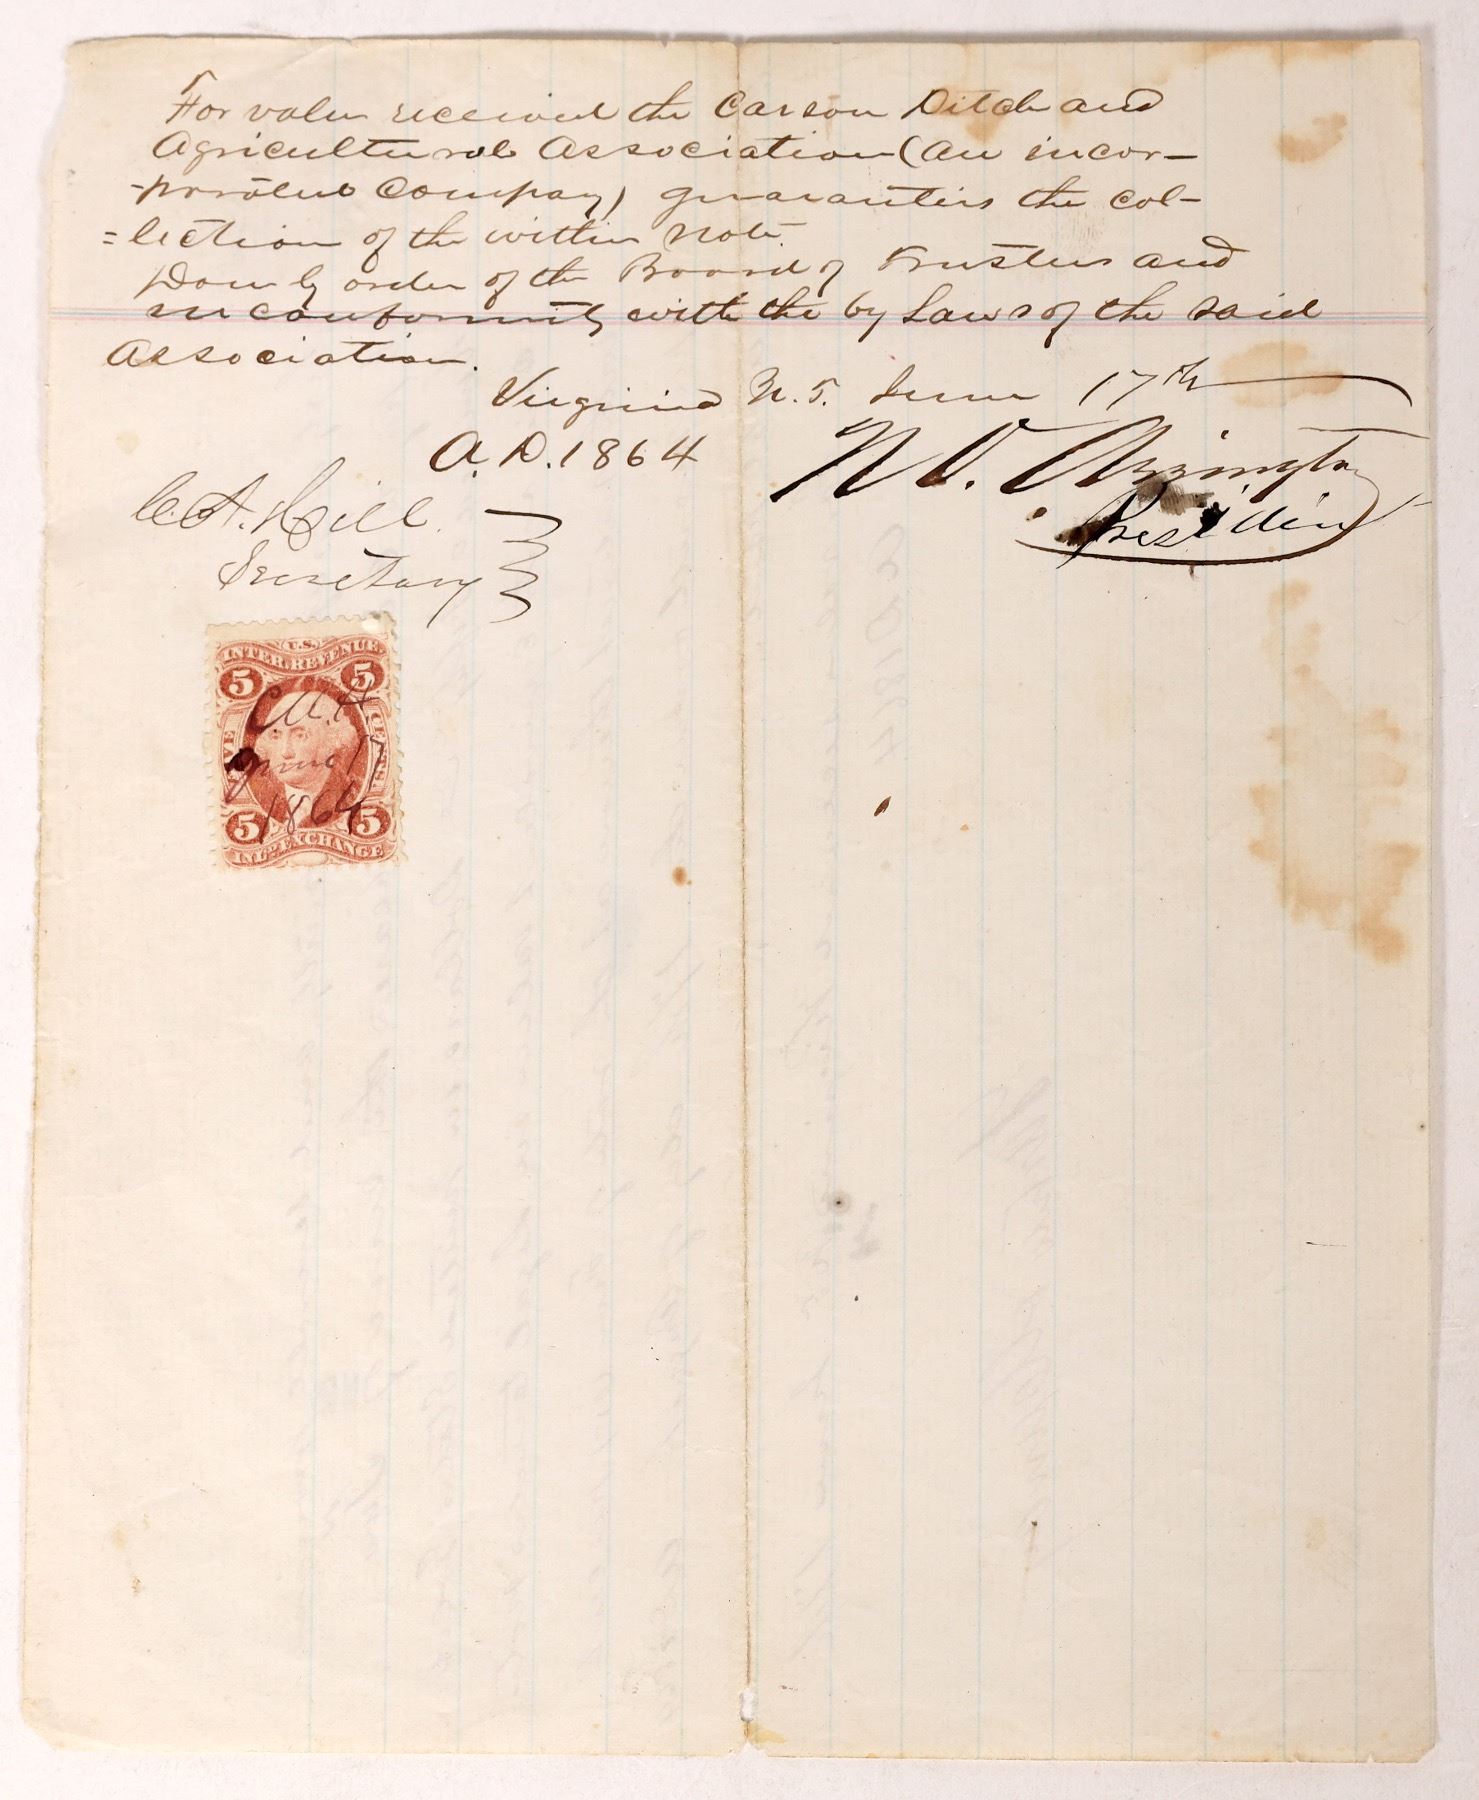 For value received the Carson Ditch and
Agricultural Association (an incor-
-porated Company) guaranties the col-
=lection of the within note.
Done by order of the Board of Trustees and
in conformity with the by Laws of the said
Association.
Virginia N.T. June 17th
A.D. 1864
N O. Arrington
President
C. A. Hill.
Secretary
U.S.
INTER. REVENUE
5 5
C.A.H
FIVE CENTS
June 17
1864
5 5
INL'D EXCHANGE